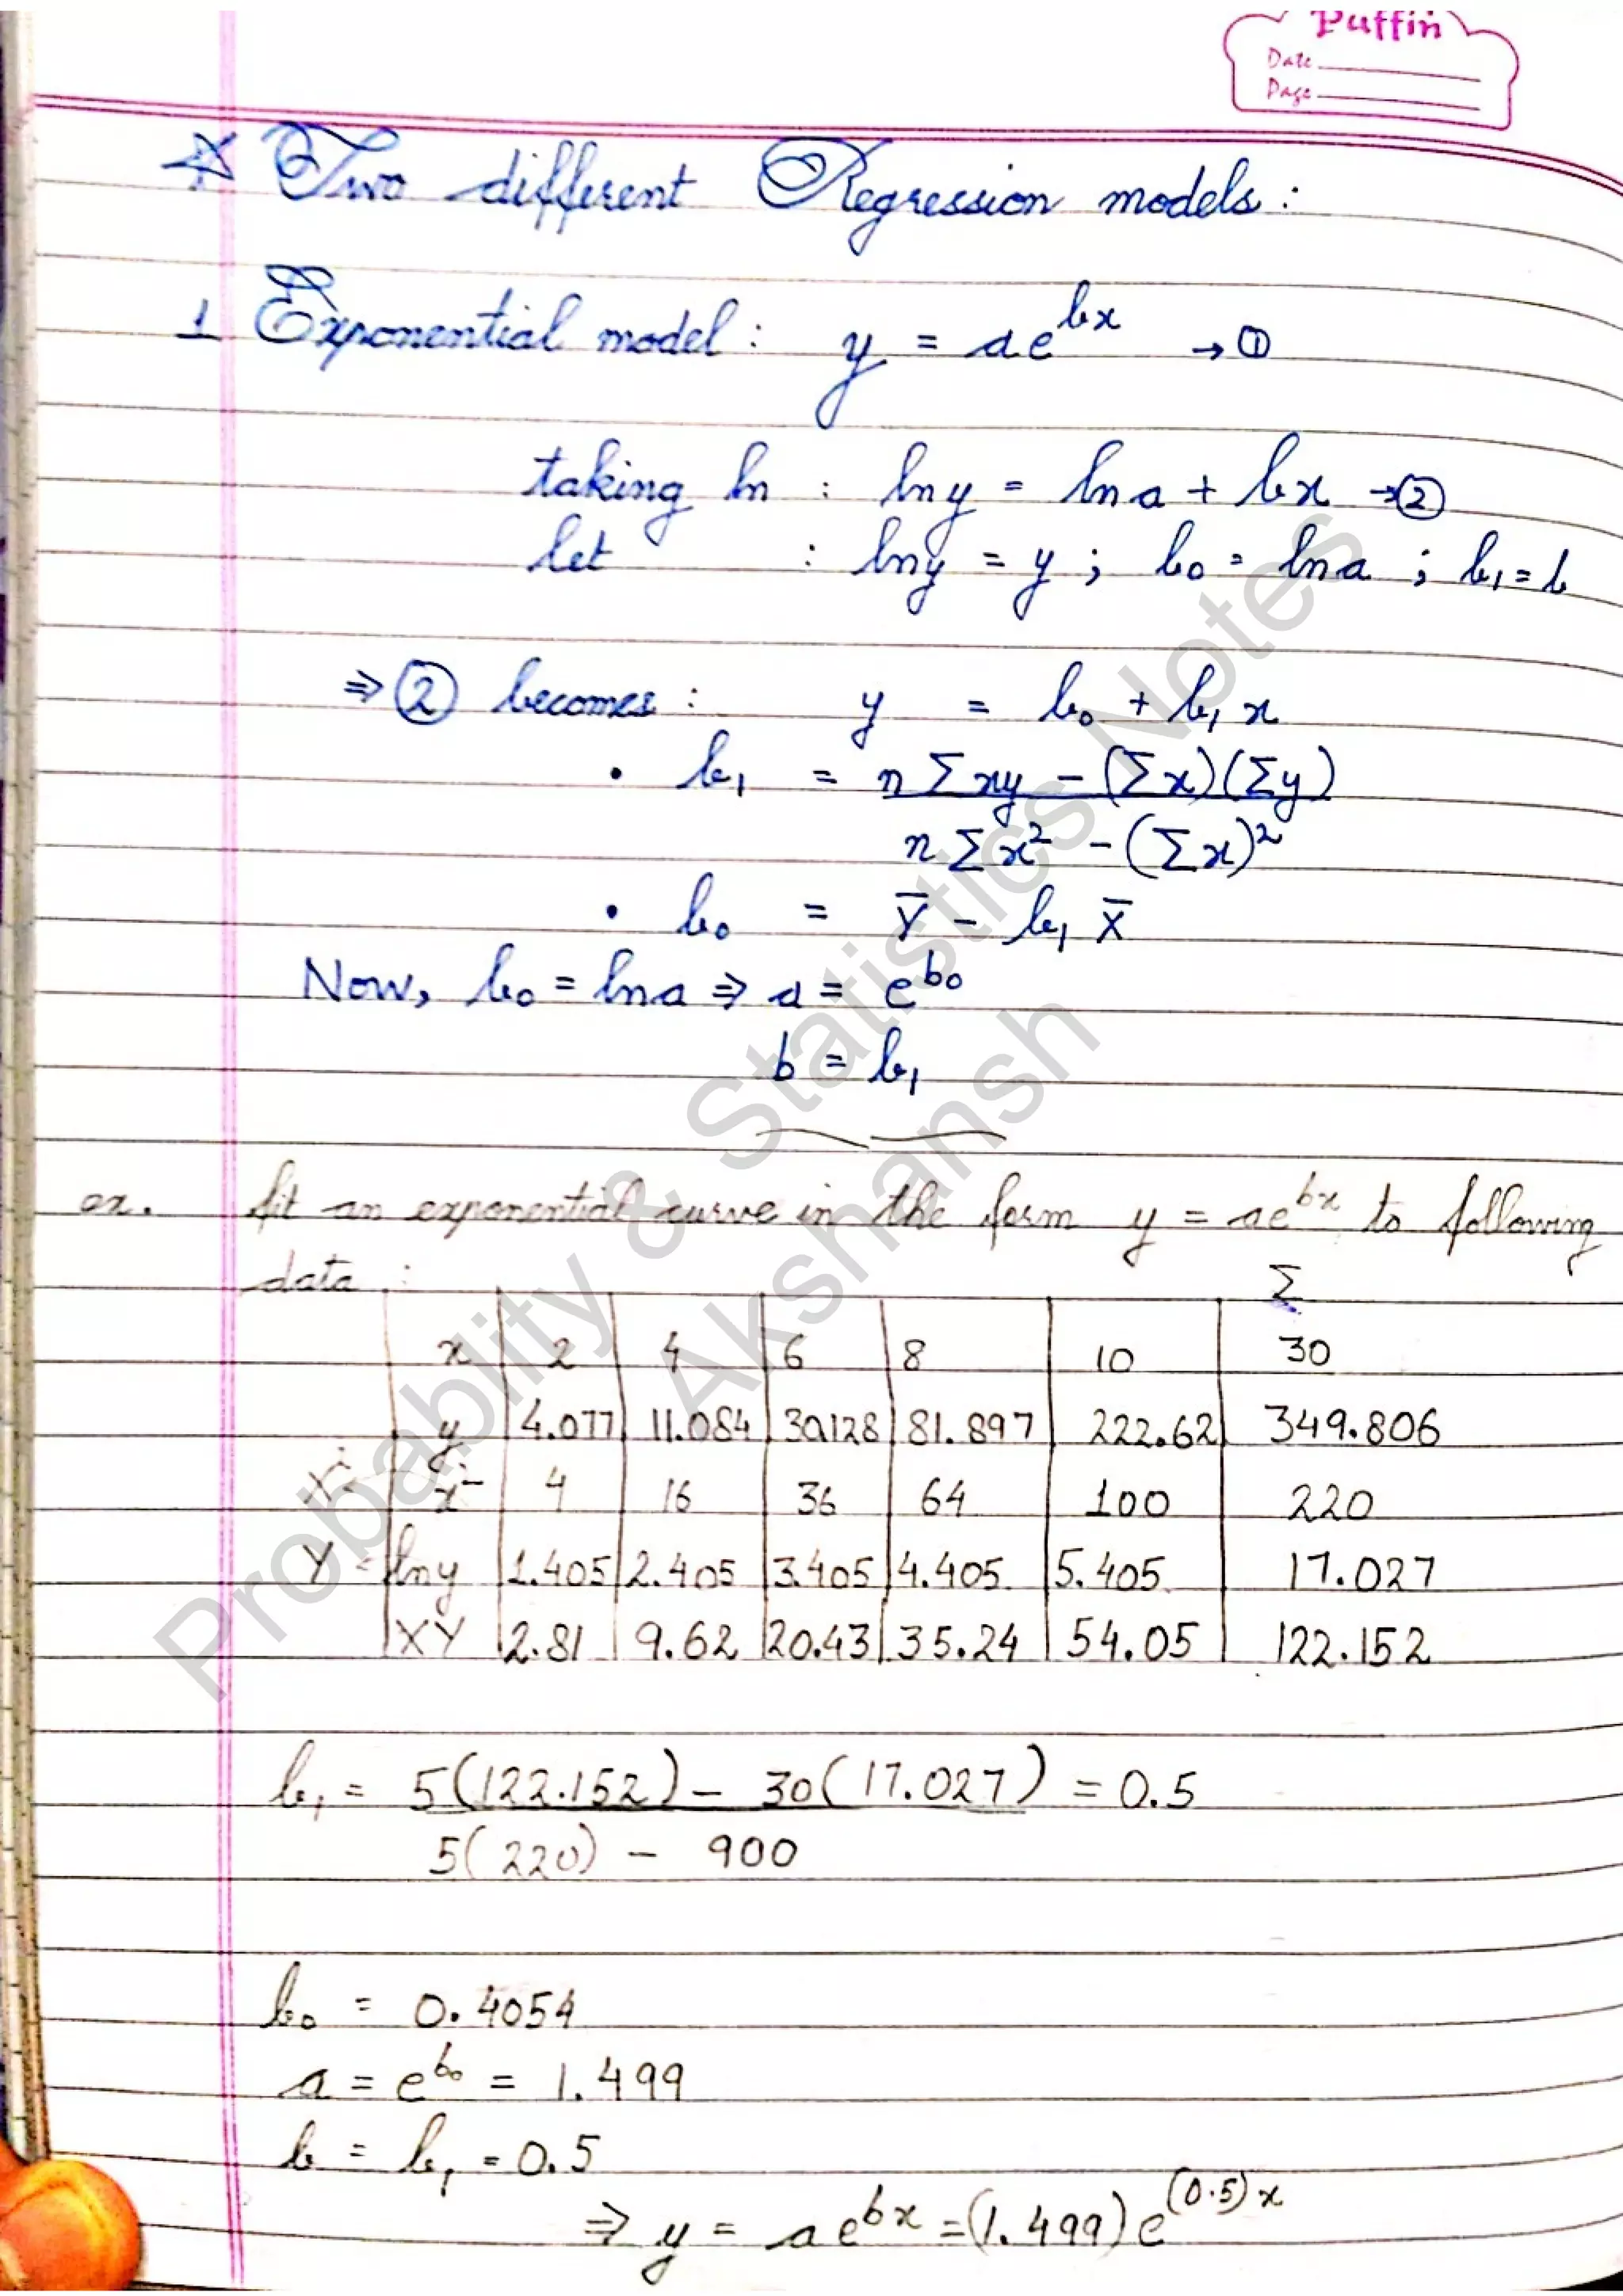 Puffin
Date
Page
☆ Two different Regression models :
1 Exponential model : y = ae^bx → ①
taking ln : ln y = ln a + bx → ②
let : ln y = y ; b₀ = ln a ; b₁ = b
⇒ ② becomes : y = b₀ + b₁ x
• b₁ = n Σxy - (Σx)(Σy)
n Σx² - (Σx)²
• b₀ = Y̅ - b₁ X̅
Now, b₀ = ln a ⇒ a = e^b₀
b = b₁
ex. fit an exponential curve in the form y = ae^bx to following
data : Σ
x 2 4 6 8 10 30
y 4.077 11.084 30.128 81.897 222.62 349.806
x² 4 16 36 64 100 220
Y = ln y 1.405 2.405 3.405 4.405 5.405 17.027
XY 2.81 9.62 20.43 35.24 54.05 122.152
b₁ = 5(122.152) - 30(17.027) = 0.5
5(220) - 900
b₀ = 0.4054
a = e^b₀ = 1.499
b = b₁ = 0.5
⇒ y = ae^bx = (1.499)e^(0.5)x
Probablity & Statistics Notes
Akshansh